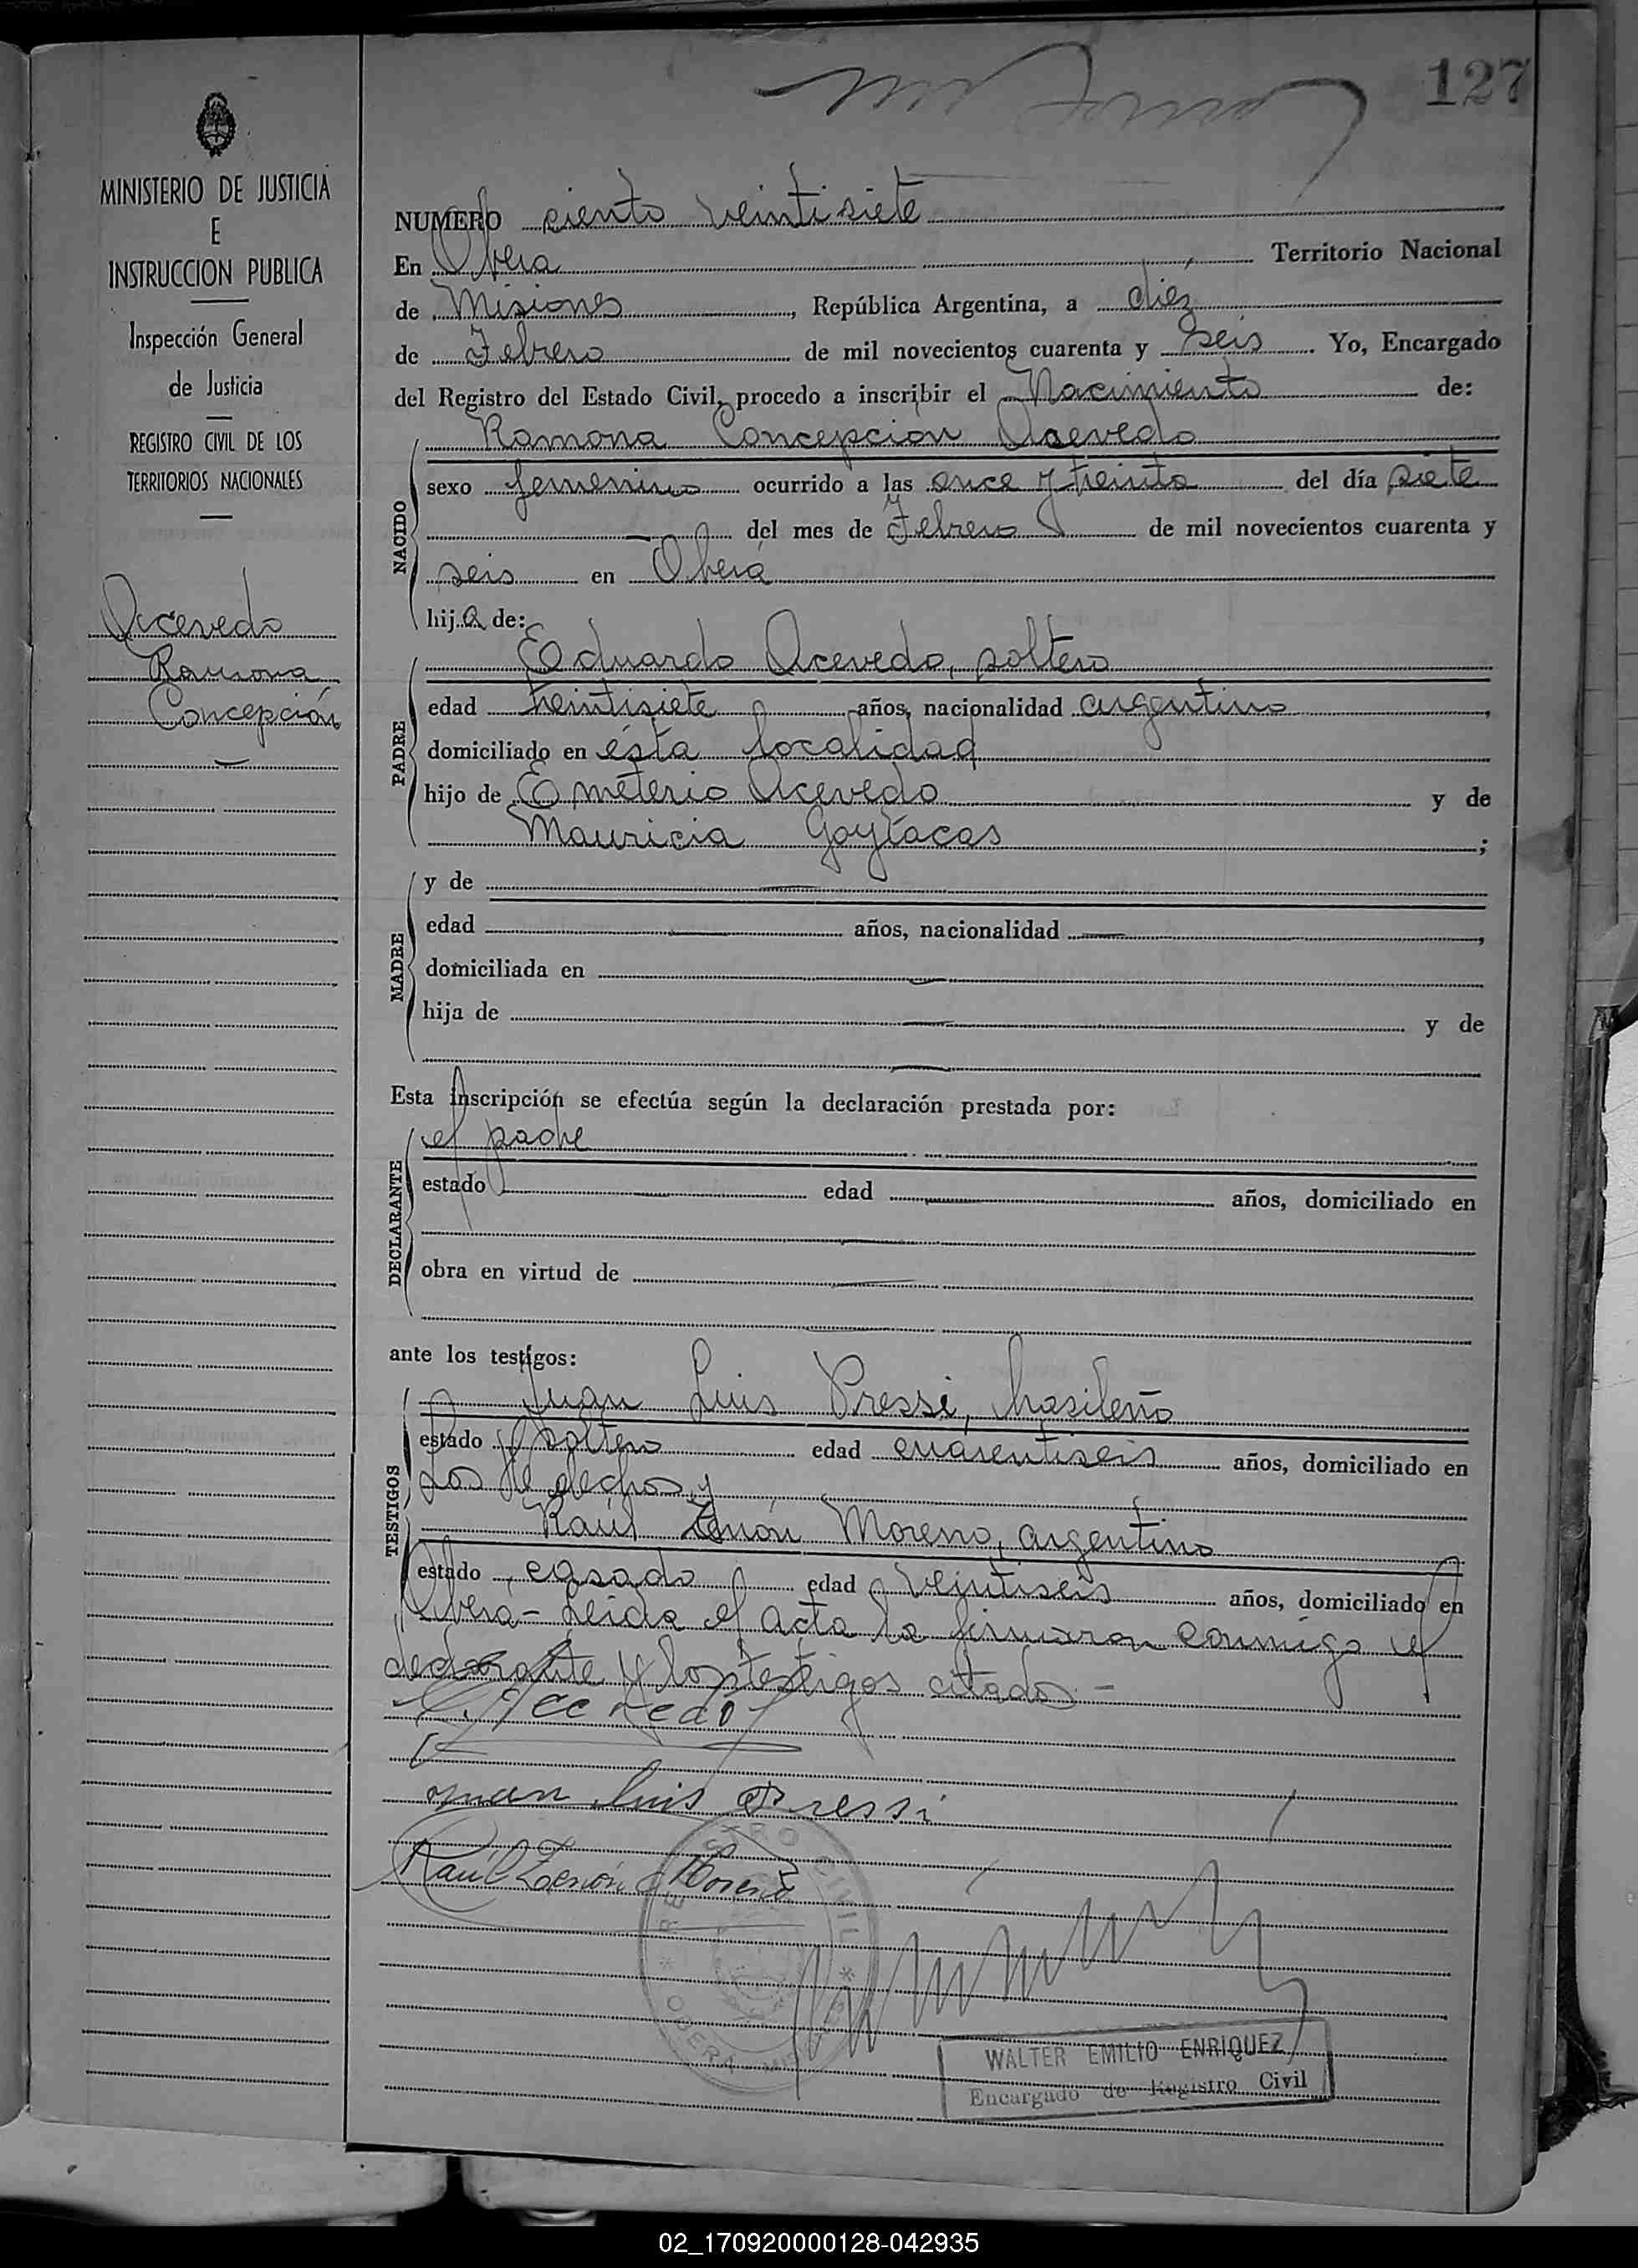 127
MINISTERIO DE JUSTICIA
E
INSTRUCCION PUBLICA
Inspección General
de Justicia
REGISTRO CIVIL DE LOS
TERRITORIOS NACIONALES
Acevedo
Ramona
Concepción
NUMERO ciento veintisiete
En Obera, Territorio Nacional
de Misiones, República Argentina, a diez
de Febrero de mil novecientos cuarenta y seis. Yo, Encargado
del Registro del Estado Civil, procedo a inscribir el Nacimiento de:
Ramona Concepcion Acevedo
NACIDO
sexo femenino ocurrido a las once y treinta del día siete
del mes de Febrero de mil novecientos cuarenta y
seis en Oberá
hija de:
Eduardo Acevedo, soltero
PADRE
edad treintisiete años, nacionalidad argentino,
domiciliado en ésta localidad
hijo de Emeterio Acevedo y de
Mauricia Goytacas;
MADRE
y de
edad años, nacionalidad,
domiciliada en
hija de y de
Esta inscripción se efectúa según la declaración prestada por:
el padre
DECLARANTE
estado edad años, domiciliado en
obra en virtud de
ante los testigos:
Juan Luis Pressi, brasileño
TESTIGOS
estado soltero edad cuarentiseis años, domiciliado en
Los Helechos y
Raúl Zenón Moreno, argentino
estado casado edad veintiseis años, domiciliado en
Obera - Leida el acta la firmaron conmigo el
declarante y los testigos citados -
E. Acevedo
Juan Luis Pressi
Raúl Zenón Moreno
REGISTRO CIVIL
OBERA
WALTER EMILIO ENRIQUEZ
Encargado de Registro Civil
02_170920000128-042935